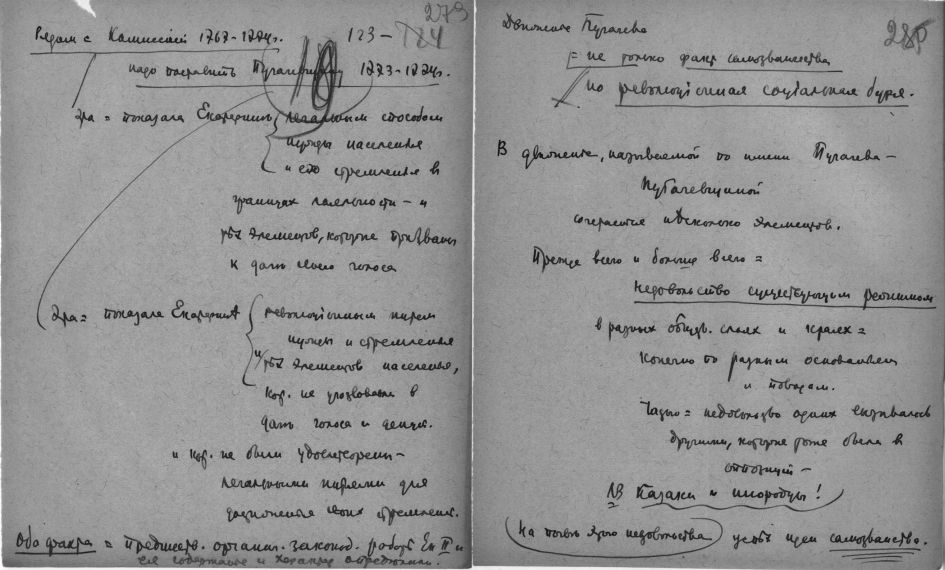 279
Рядом с Комиссией 1767-1774г.
123-124
надо поставить Пугачевщину 1773-1774г.
Эта = показала Екатерине легальным способом
нужды населения
и его стремления в
границах лояльности - и
тех элементов, которые призваны
к дать своего голоса
Эта = показала Екатерине революционным путем
нужды и стремления
и тех элементов населения,
кот. не
дать голоса и
и кот. не были удовлетворены -
легальными путями для
своих стремлений.
Оба факта = предшеств. органич. законод. работе Ек II и
ея содержание и характер определили.
285
Движение Пугачева
= не только факт самозванства
но революционная социальная буря.
В движение, называемой по имени Пугачева -
Пугачевщиной
сочетается несколько элементов.
Прежде всего и больше всего =
недовольство существующим режимом
в разных общ. слоях и краях =
Конечно по разным основаниям
и поводам.
Часто = недовольство одних вызывалось
другими, которые тоже были в
оппозиции -
NB Казаки и инородцы!
На почве этого недовольства успех идеи самозванства.